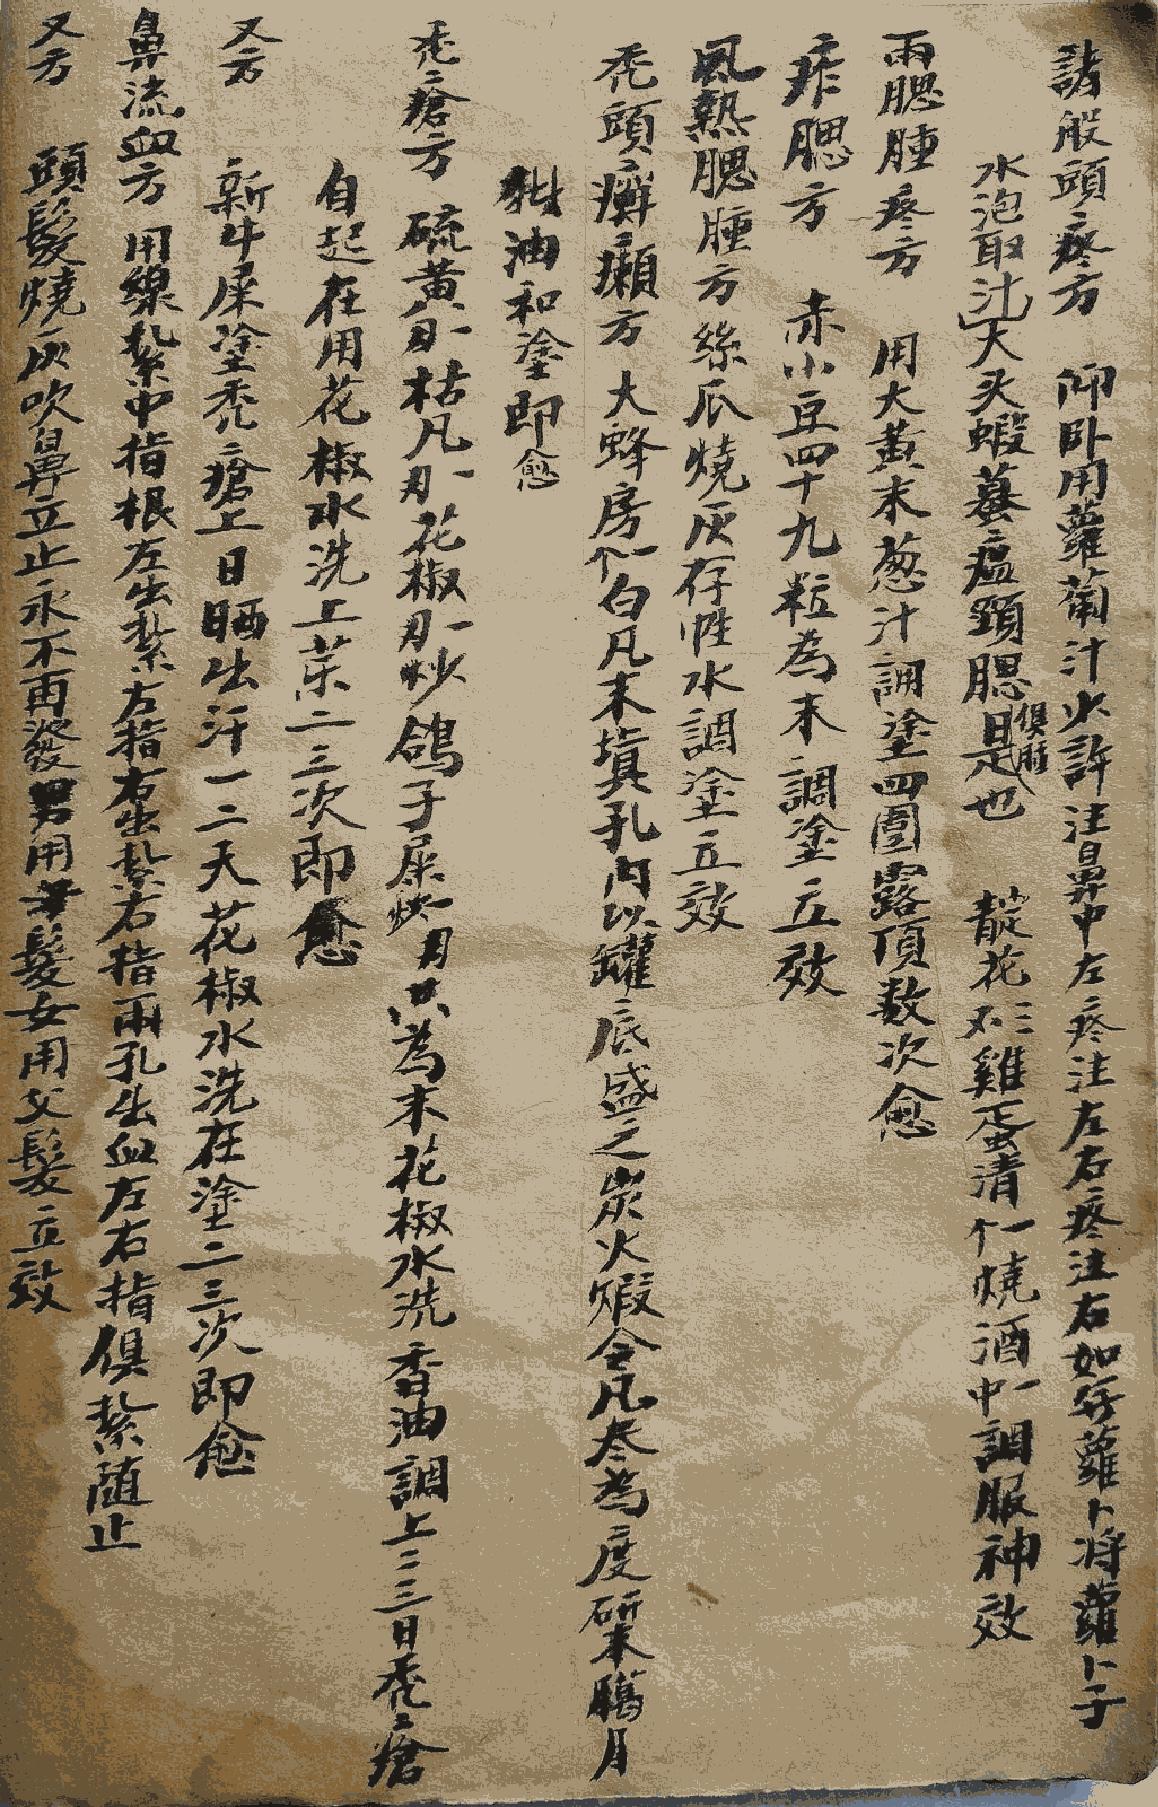 諸般頭疼方　仰卧用蘿蔔汁少許注鼻中左疼注左右疼注右如無蘿卜将蘿卜子
水泡取汁　大头蝦蟇瘟頸腮俱腫是也　靛花不三雞蛋清一个燒酒一中調服神效
両腮腫疼方　用大黄末葱汁調塗四圍露頂数次愈
痄腮方　赤小豆四十九粒為末調塗立效
風熱腮腫方　絲瓜燒灰存性水調塗立效
禿頭癬癩方　大蜂房一个白凡末填孔内以罐底盛之炭火煆令凡尽為度研末臈月
猪油和塗即愈
禿瘡方　硫黄一刃枯凡一刃花椒一刃炒鴿子屎為末花椒水洗香油調上二三日禿瘡
自起在用花椒水洗上药二三次即愈
又方　新牛屎塗禿瘡上日晒出汗一二天花椒水洗在塗二三次即愈
鼻流血方　用線紥中指根左出紥左指右出紥右指両孔出血左右指俱紥随止
又方　頭髮燒灰吹鼻立止永不再發男用母髮女用父髮立效